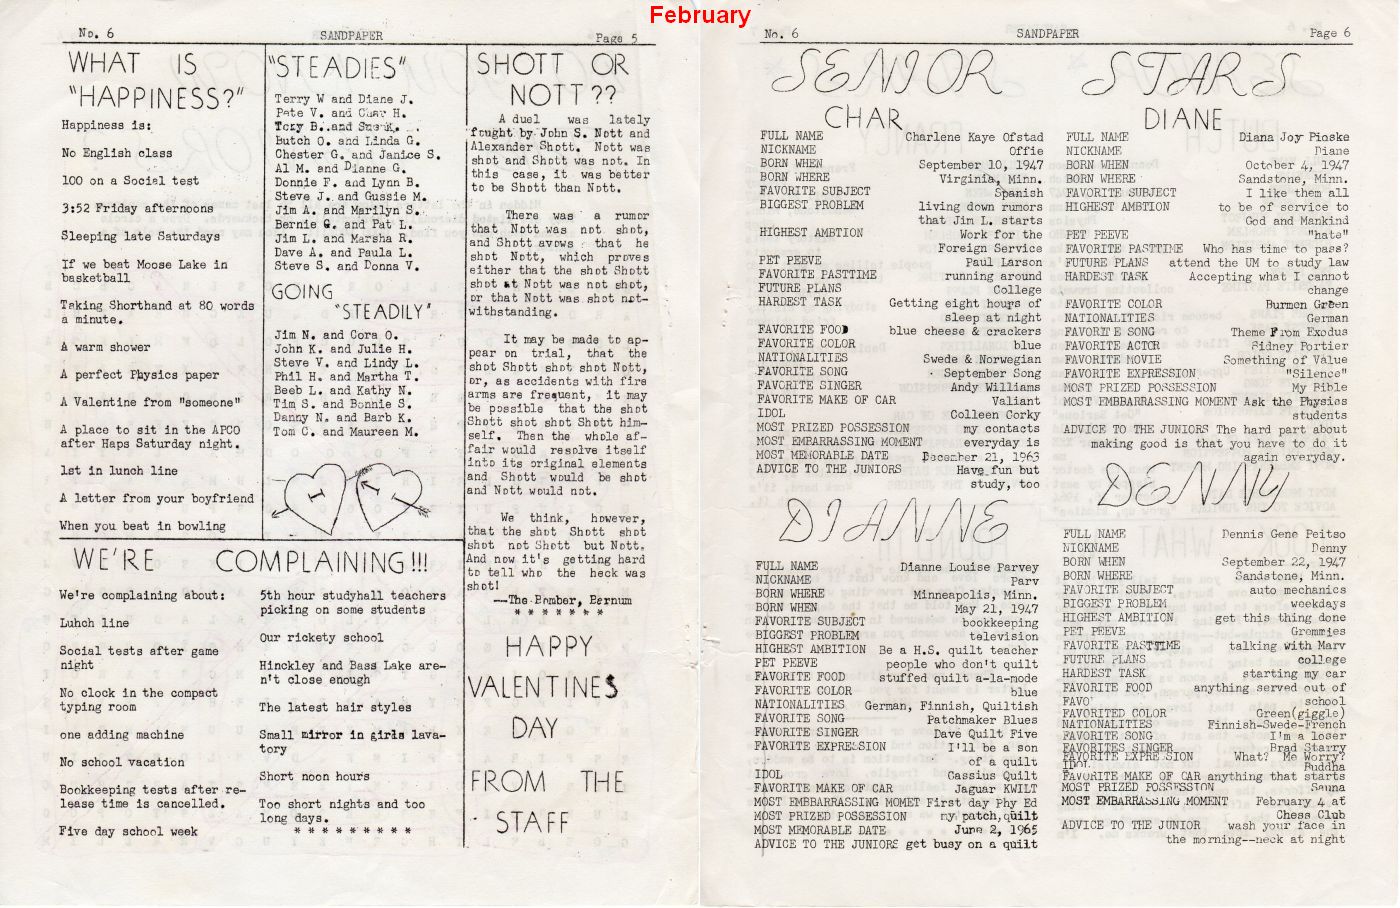 February
No. 6 SANDPAPER Page 5
WHAT IS
"HAPPINESS?"
Happiness is:
No English class
100 on a Social test
3:52 Friday afternoons
Sleeping late Saturdays
If we beat Moose Lake in
basketball
Taking Shorthand at 80 words
a minute.
A warm shower
A perfect Physics paper
A Valentine from "someone"
A place to sit in the APCO
after Haps Saturday night.
1st in lunch line
A letter from your boyfriend
When you beat in bowling
"STEADIES"
Terry W and Diane J.
Pete V. and H.
Tory B. and
Butch O. and Linda G.
Chester G. and Janice S.
Al M. and Dianne G.
Donnie F. and Lynn B.
Steve J. and Gussie M.
Jim A. and Marilyn S.
Bernie G. and Pat L.
Jim L. and Marsha R.
Dave A. and Paula L.
Steve S. and Donna V.
GOING
"STEADILY"
Jim N. and Cora O.
John K. and Julie H.
Steve V. and Lindy L.
Phil H. and Martha T.
Beeb L. and Kathy N.
Tim S. and Bonnie S.
Danny N. and Barb K.
Tom C. and Maureen M.
I I
SHOTT OR
NOTT??
A duel was lately
fought by John S. Nott and
Alexander Shott. Nott was
shot and Shott was not. In
this case, it was better
to be Shott than Nott.
There was a rumor
that Nott was not shot,
and Shott avows that he
shot Nott, which proves
either that the shot Shott
shot at Nott was not shot,
or that Nott was shot not-
withstanding.
It may be made to ap-
pear on trial, that the
shot Shott shot shot Nott,
or, as accidents with fire
arms are frequent, it may
be possible that the shot
Shott shot shot Shott him-
self. Then the whole af-
fair would resolve itself
into its original elements
and Shott would be shot
and Nott would not.
We think, however,
that the shot Shott shot
shot not Shott but Nott.
And now it's getting hard
to tell who the heck was
shot!
--The Bomber, Bernum
* * * * * * *
HAPPY
VALENTINES
DAY
FROM THE
STAFF
WE'RE COMPLAINING!!!
We're complaining about:
Luhch line
Social tests after game
night
No clock in the compact
typing room
one adding machine
No school vacation
Bookkeeping tests after re-
lease time is cancelled.
Five day school week
5th hour studyhall teachers
picking on some students
Our rickety school
Hinckley and Bass Lake are-
n't close enough
The latest hair styles
Small mirror in girls lava-
tory
Short noon hours
Too short nights and too
long days.
* * * * * * * * *
No. 6 SANDPAPER Page 6
SENIOR STARS
CHAR
FULL NAME Charlene Kaye Ofstad
NICKNAME Offie
BORN WHEN September 10, 1947
BORN WHERE Virginia, Minn.
FAVORITE SUBJECT Spanish
BIGGEST PROBLEM living down rumors
that Jim L. starts
HIGHEST AMBTION Work for the
Foreign Service
PET PEEVE Paul Larson
FAVORITE PASTTIME running around
FUTURE PLANS College
HARDEST TASK Getting eight hours of
sleep at night
FAVORITE FOOD blue cheese & crackers
FAVORITE COLOR blue
NATIONALITIES Swede & Norwegian
FAVORITE SONG September Song
FAVORITE SINGER Andy Williams
FAVORITE MAKE OF CAR Valiant
IDOL Colleen Corky
MOST PRIZED POSSESSION my contacts
MOST EMBARRASSING MOMENT everyday is
MOST MEMORABLE DATE December 21, 1963
ADVICE TO THE JUNIORS Have fun but
study, too
DIANNE
FULL NAME Dianne Louise Parvey
NICKNAME Parv
BORN WHERE Minneapolis, Minn.
BORN WHEN May 21, 1947
FAVORITE SUBJECT bookkeeping
BIGGEST PROBLEM television
HIGHEST AMBITION Be a H.S. quilt teacher
PET PEEVE people who don't quilt
FAVORITE FOOD stuffed quilt a-la-mode
FAVORITE COLOR blue
NATIONALITIES German, Finnish, Quiltish
FAVORITE SONG Patchmaker Blues
FAVORITE SINGER Dave Quilt Five
FAVORITE EXPRESSION I'll be a son
of a quilt
IDOL Cassius Quilt
FAVORITE MAKE OF CAR Jaguar KWILT
MOST EMBBARRASSING MOMET First day Phy Ed
MOST PRIZED POSSESSION my patch,quilt
MOST MEMORABLE DATE June 2, 1965
ADVICE TO THE JUNIORS get busy on a quilt
DIANE
FULL NAME Diana Joy Pioske
NICKNAME Diane
BORN WHEN October 4, 1947
BORN WHERE Sandstone, Minn.
FAVORITE SUBJECT I like them all
HIGHEST AMBTION to be of service to
God and Mankind
PET PEEVE "hate"
FAVORITE PASTTIME Who has time to pass?
FUTURE PLANS attend the UM to study law
HARDEST TASK Accepting what I cannot
change
FAVORITE COLOR Burmen Green
NATIONALITIES German
FAVORITE SONG Theme From Exodus
FAVORITE ACTOR Sidney Portier
FAVORITE MOVIE Something of Value
FAVORITE EXPRESSION "Silence"
MOST PRIZED POSSESSION My Bible
MOST EMBBARASSING MOMENT Ask the Physics
students
ADVICE TO THE JUNIORS The hard part about
making good is that you have to do it
again everyday.
DENNY
FULL NAME Dennis Gene Peitso
NICKNAME Denny
BORN WHEN September 22, 1947
BORN WHERE Sandstone, Minn.
FAVORITE SUBJECT auto mechanics
BIGGEST PROBLEM weekdays
HIGHEST AMBITION get this thing done
PET PEEVE Grommies
FAVORITE PASTTIME talking with Marv
FUTURE PLANS college
HARDEST TASK starting my car
FAVORITE FOOD anything served out of
FAVO school
FAVORITED COLOR Green(giggle)
NATIONALITIES Finnish-Swede-French
FAVORITE SONG I'm a loser
FAVORITES SINGER Brad Starry
FAVORITE EXPRESSION What? Me Worry?
IDOL Buddha
FAVORITE MAKE OF CAR anything that starts
MOST PIZED POSSESSION Sauna
MOST EMBARRASSING MOMENT February 4 at
Chess Club
ADVICE TO THE JUNIOR wash your face in
the morning--neck at night